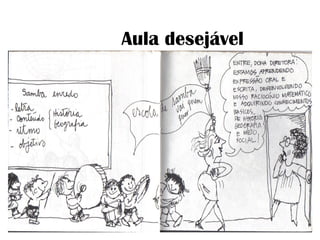 Aula desejável
Samba enredo
- letra
- conteúdo { História
Geografia
- ritmo
- objetivo
escola de samba
vai quem
quer
ENTRE, DONA DIRETORA!
ESTAMOS APRENDENDO
EXPRESSÃO ORAL E
ESCRITA, DESENVOLVENDO
NOSSO RACIOCÍNIO MATEMÁTICO
E ADQUIRINDO CONHECIMENTOS
BÁSICOS
DE HISTÓRIA
GEOGRAFIA
E MEIO
SOCIAL.